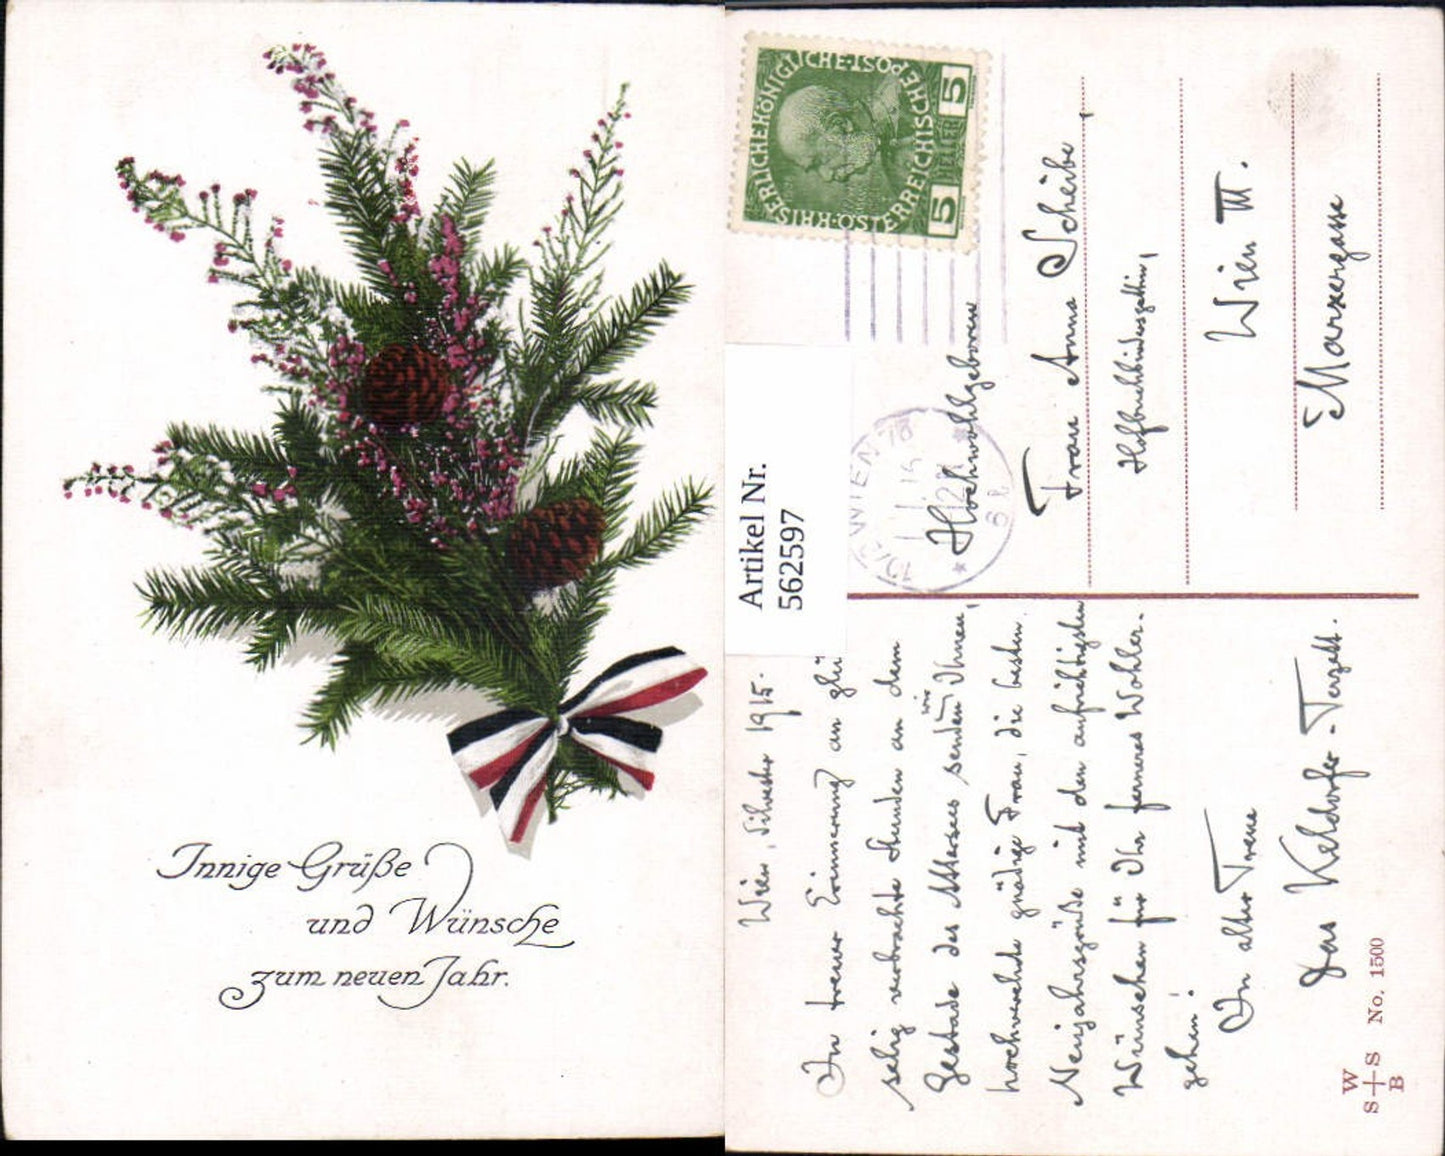 Innige Grüße
und Wünsche
zum neuen Jahr.
KAISERLICHE KÖNIGLICHE ÖSTERREICHISCHE POST
5 HELLER 5
Artikel Nr.
562597
WIEN
Hochwohlgeboren
Frau Anna Scheibe,
Hofbuchbindersgattin,
Wien III.
Marxergasse
Wien, Silvester 1915.
In treuer Erinnerung an glü
selig verbrachte Stunden an dem
Gestade des Attersees senden wir Ihnen,
hochverehrte gnädige Frau, die besten
Neujahrsgrüße mit den aufrichtigsten
Wünschen für Ihr ferneres Wohler-
gehen!
In alter Treue
Das Keldorfer-Terzett.
W
S S
B
No. 1500